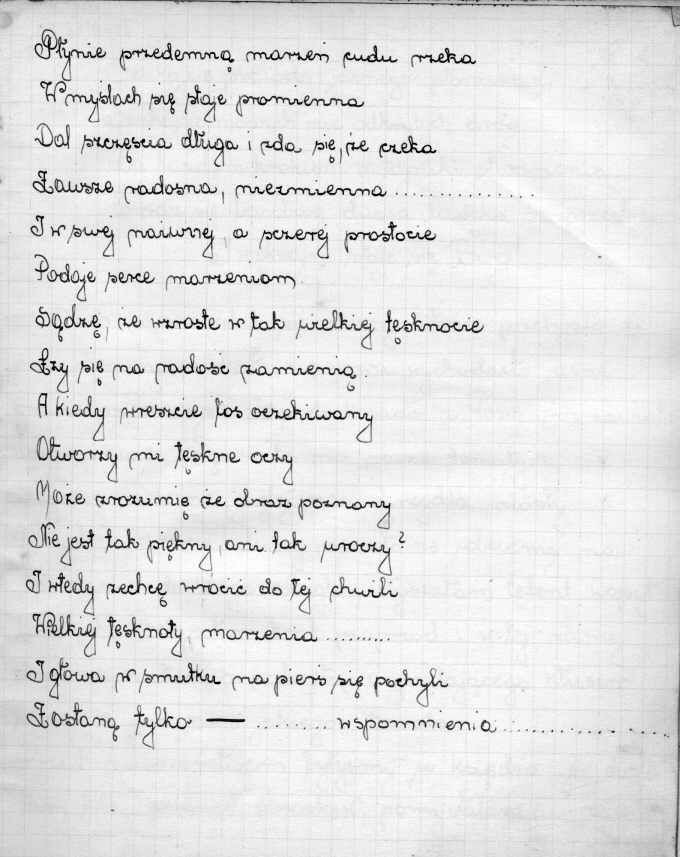 Płynie przedemną marzeń cudu rzeka
W myślach się staje promienna
Dal szczęścia długa i zda się, że czeka
Zawsze radosna, niezmienna ................
I w swej naiwnej, a szczerej prostocie
Podaje serce marzeniom
Sądzę, że wzrosłe w tak wielkiej tęsknocie
Łzy się na radość zamienią.
A kiedy wreszcie los oczekiwany
Otworzy mi tęskne oczy
Może zrozumię że obraz poznany
Nie jest tak piękny, ani tak uroczy?
I wtedy zechcę wrócić do tej chwili
Wielkiej tęsknoty, marzenia ..........
I głowa w smutku na pierś się pochyli
Zostaną tylko — .......... wspomnienia ....................